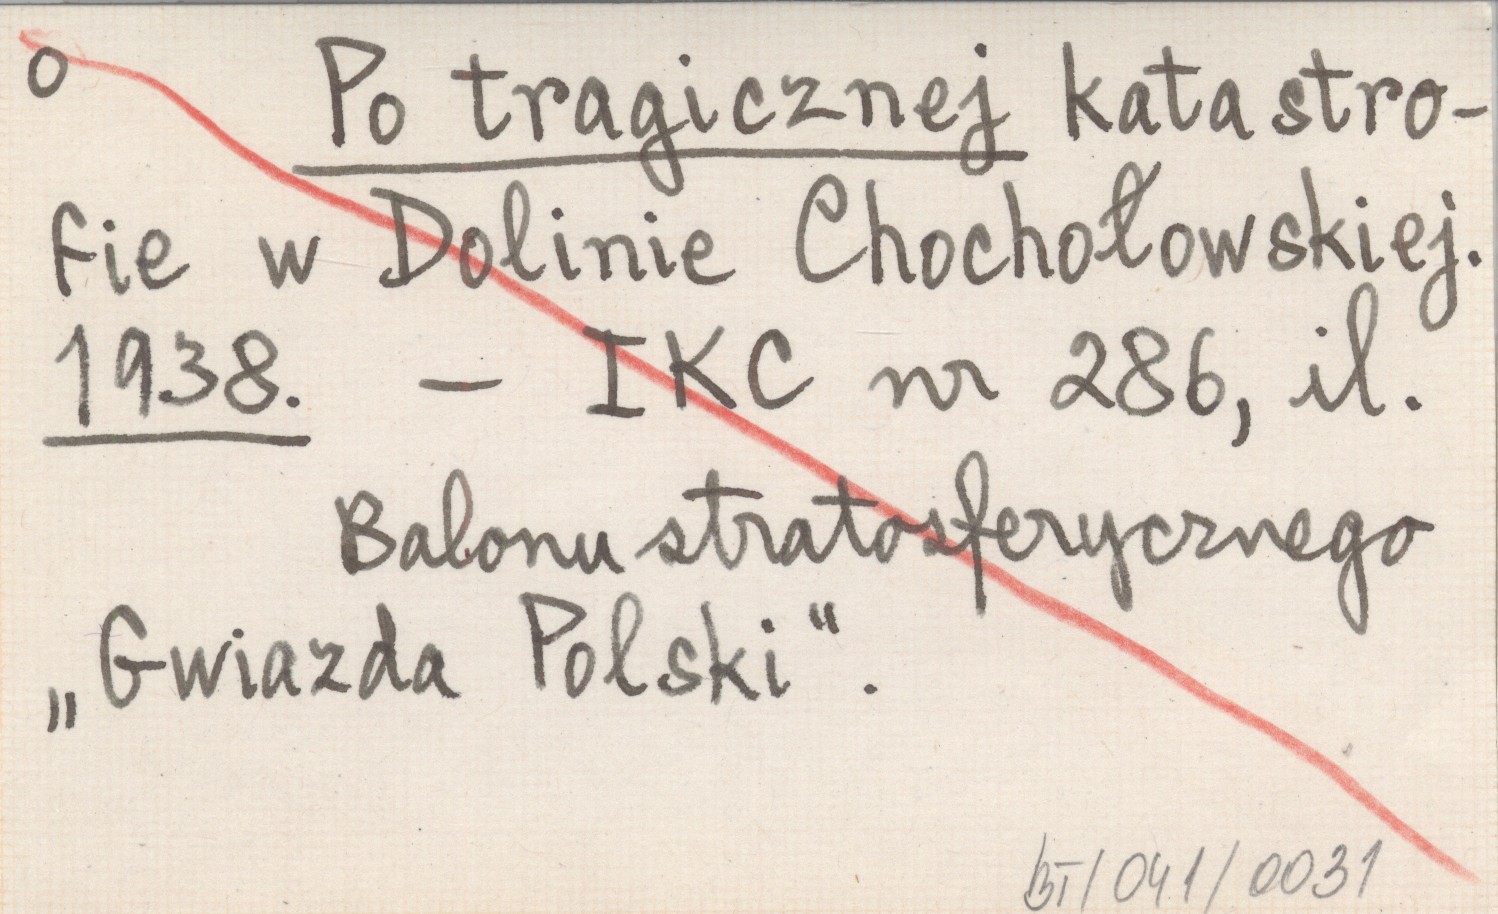 o Po tragicznej katastro-
fie w Dolinie Chochołowskiej.
1938. – IKC nr 286, il.
Balonu stratosferycznego
„Gwiazda Polski".
BT/041/0031